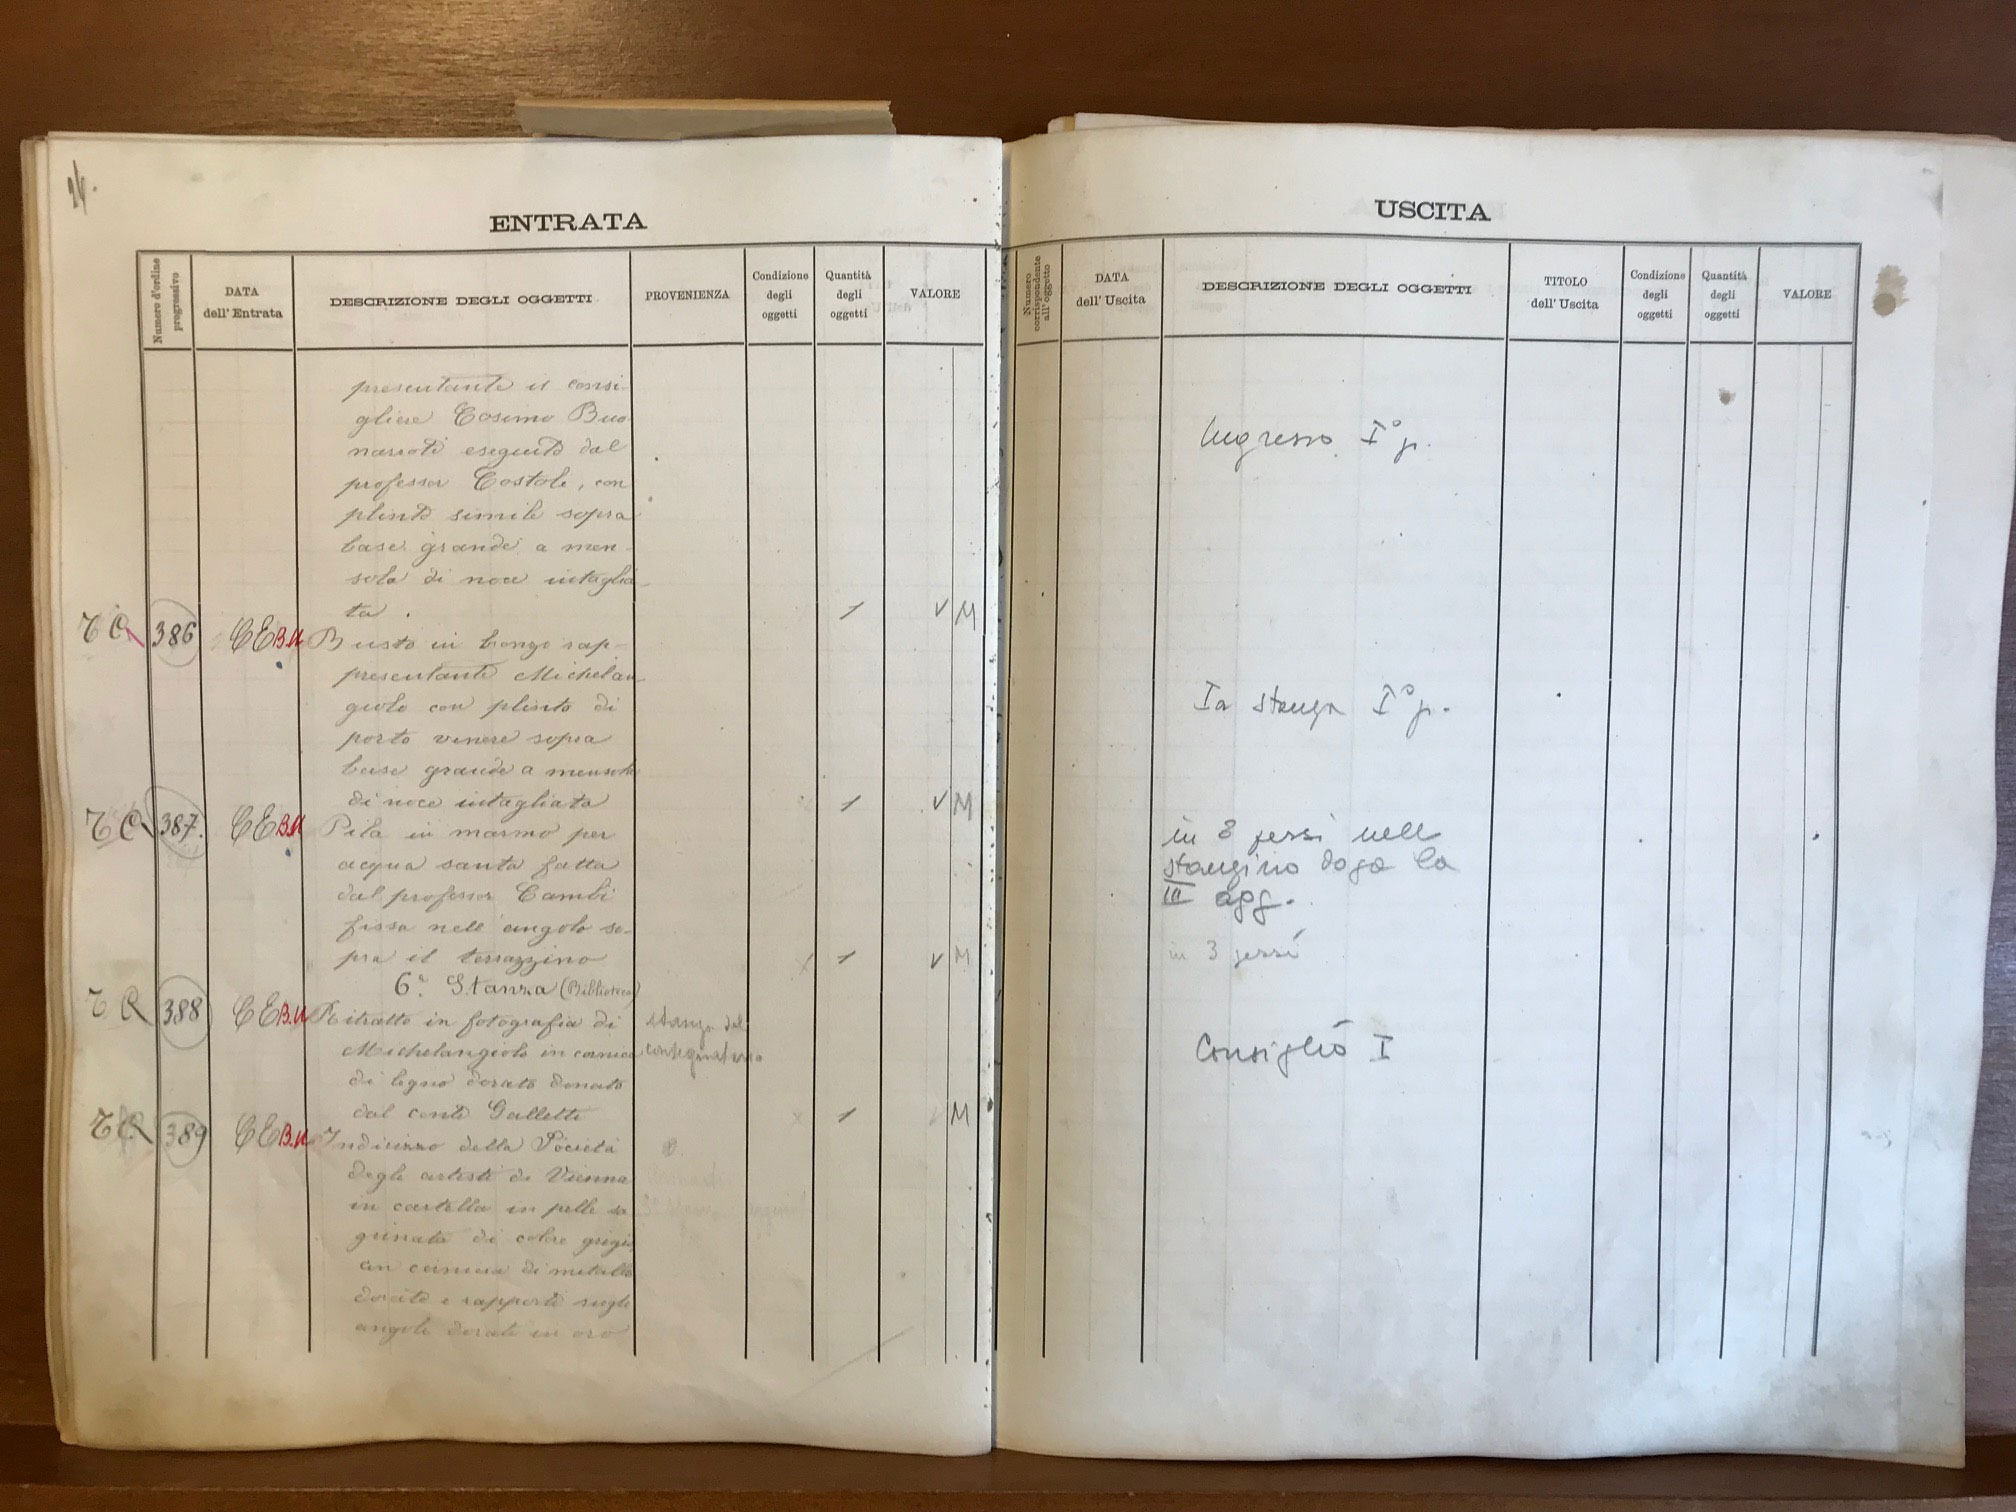 24.
ENTRATA
Numero d'ordine progressivo
DATA dell' Entrata
DESCRIZIONE DEGLI OGGETTI
PROVENIENZA
Condizione degli oggetti
Quantità degli oggetti
VALORE
presentante il consi-
gliere Cosimo Buo
narroti eseguito dal
professor Costoli, con
plinto simile sopra
base grande a men-
sola di noce intaglia-
ta . 1 V M
386 CE B.U Busto in bronzo rap-
presentante Michelan
giolo con plinto di
porto venere sopra
base grande a mensola
di noce intagliata 1 V M
387. CE B.U Pila in marmo per
acqua santa fatta
dal professor Cambi
fissa nell' angolo so-
pra il terrazzino x 1 V M
6a. Stanza (Biblioteca)
388 CE B.U Ritratto in fotografia di stanza del
Michelangiolo in cornice consegnatario
di legno dorato donato
dal conte Galletti x 1 V M
389 CE B.U Indirizzo della Società
degli artisti di Vienna
in cartella in pelle sa
grinata di colore grigio
con cornice di metallo
dorato e rapporti sugli
angoli dorati in oro
USCITA
Numero corrispondente all' oggetto
DATA dell' Uscita
DESCRIZIONE DEGLI OGGETTI
TITOLO dell' Uscita
Condizione degli oggetti
Quantità degli oggetti
VALORE
Ingresso I° p.
Ia stanza I° p.
in 3 pezzi nell
stanzino dopo la
III app.
in 3 pezzi
Consiglio I